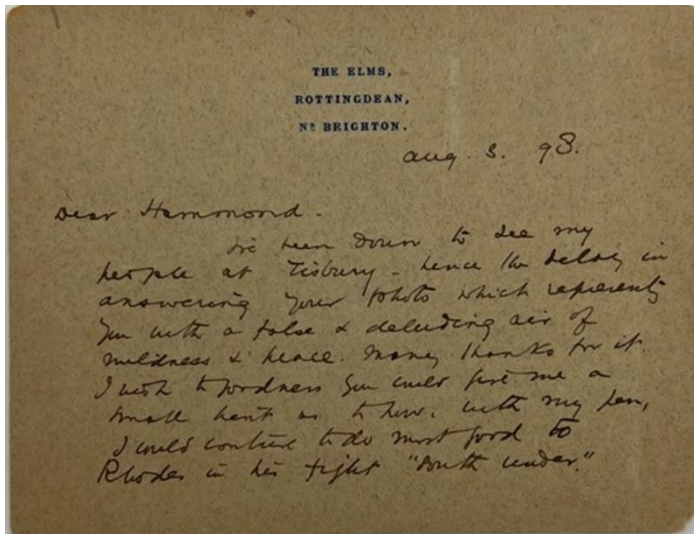 THE ELMS,
ROTTINGDEAN,
Nr BRIGHTON.
Aug. 3. 98.
Dear Hammond.
I've been down to see my
people at Tisbury - hence the delay in
answering your photo which represents
you with a false & deluding air of
mildness & peace. Many thanks for it.
I wish to goodness you could give me a
small hint as to how, with my pen,
I could contrive to do most good to
Rhodes in his fight "South under."